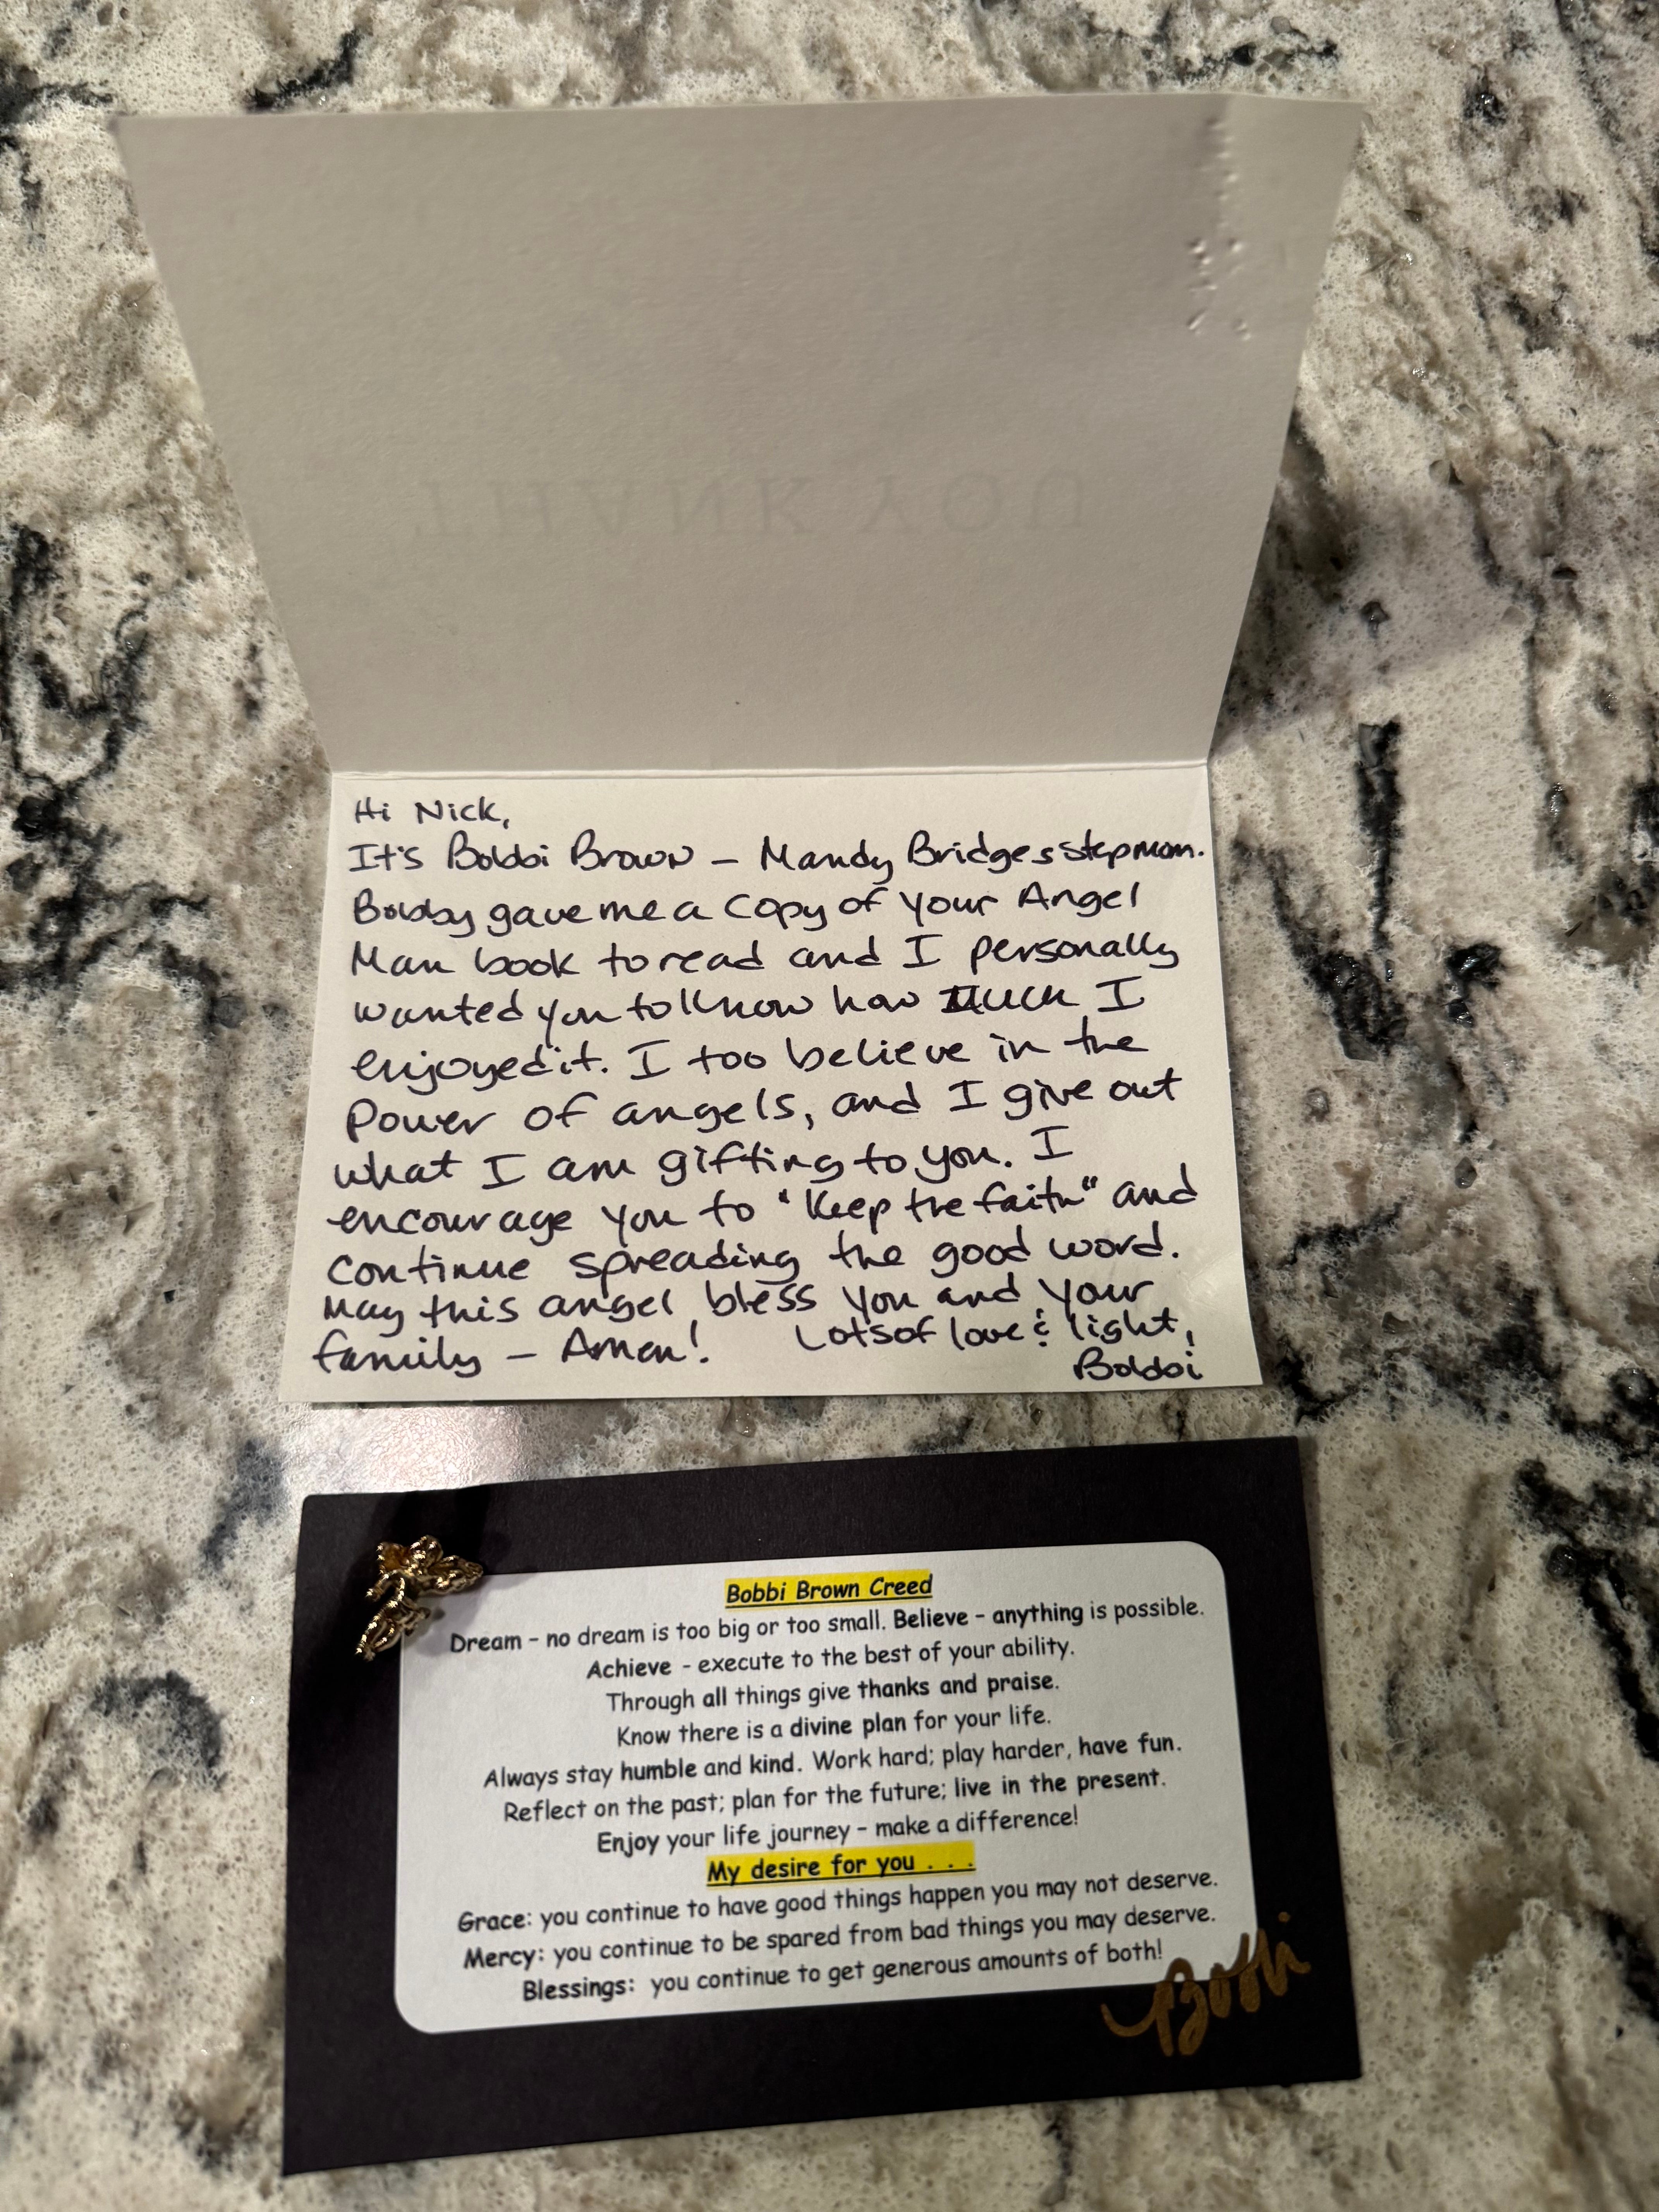 THANK YOU
Hi Nick,
It's Bobbi Brown – Mandy Bridges stepmom.
Bobby gave me a copy of your Angel
Man book to read and I personally
wanted you to know how much I
enjoyed it. I too believe in the
power of angels, and I give out
what I am gifting to you. I
encourage you to "Keep the faith" and
continue spreading the good word.
May this angel bless you and your
family – Amen! Lots of love & light,
Bobbi
Bobbi Brown Creed
Dream – no dream is too big or too small. Believe – anything is possible.
Achieve - execute to the best of your ability.
Through all things give thanks and praise.
Know there is a divine plan for your life.
Always stay humble and kind. Work hard; play harder, have fun.
Reflect on the past; plan for the future; live in the present.
Enjoy your life journey – make a difference!
My desire for you . . .
Grace: you continue to have good things happen you may not deserve.
Mercy: you continue to be spared from bad things you may deserve.
Blessings: you continue to get generous amounts of both!
Bobbi